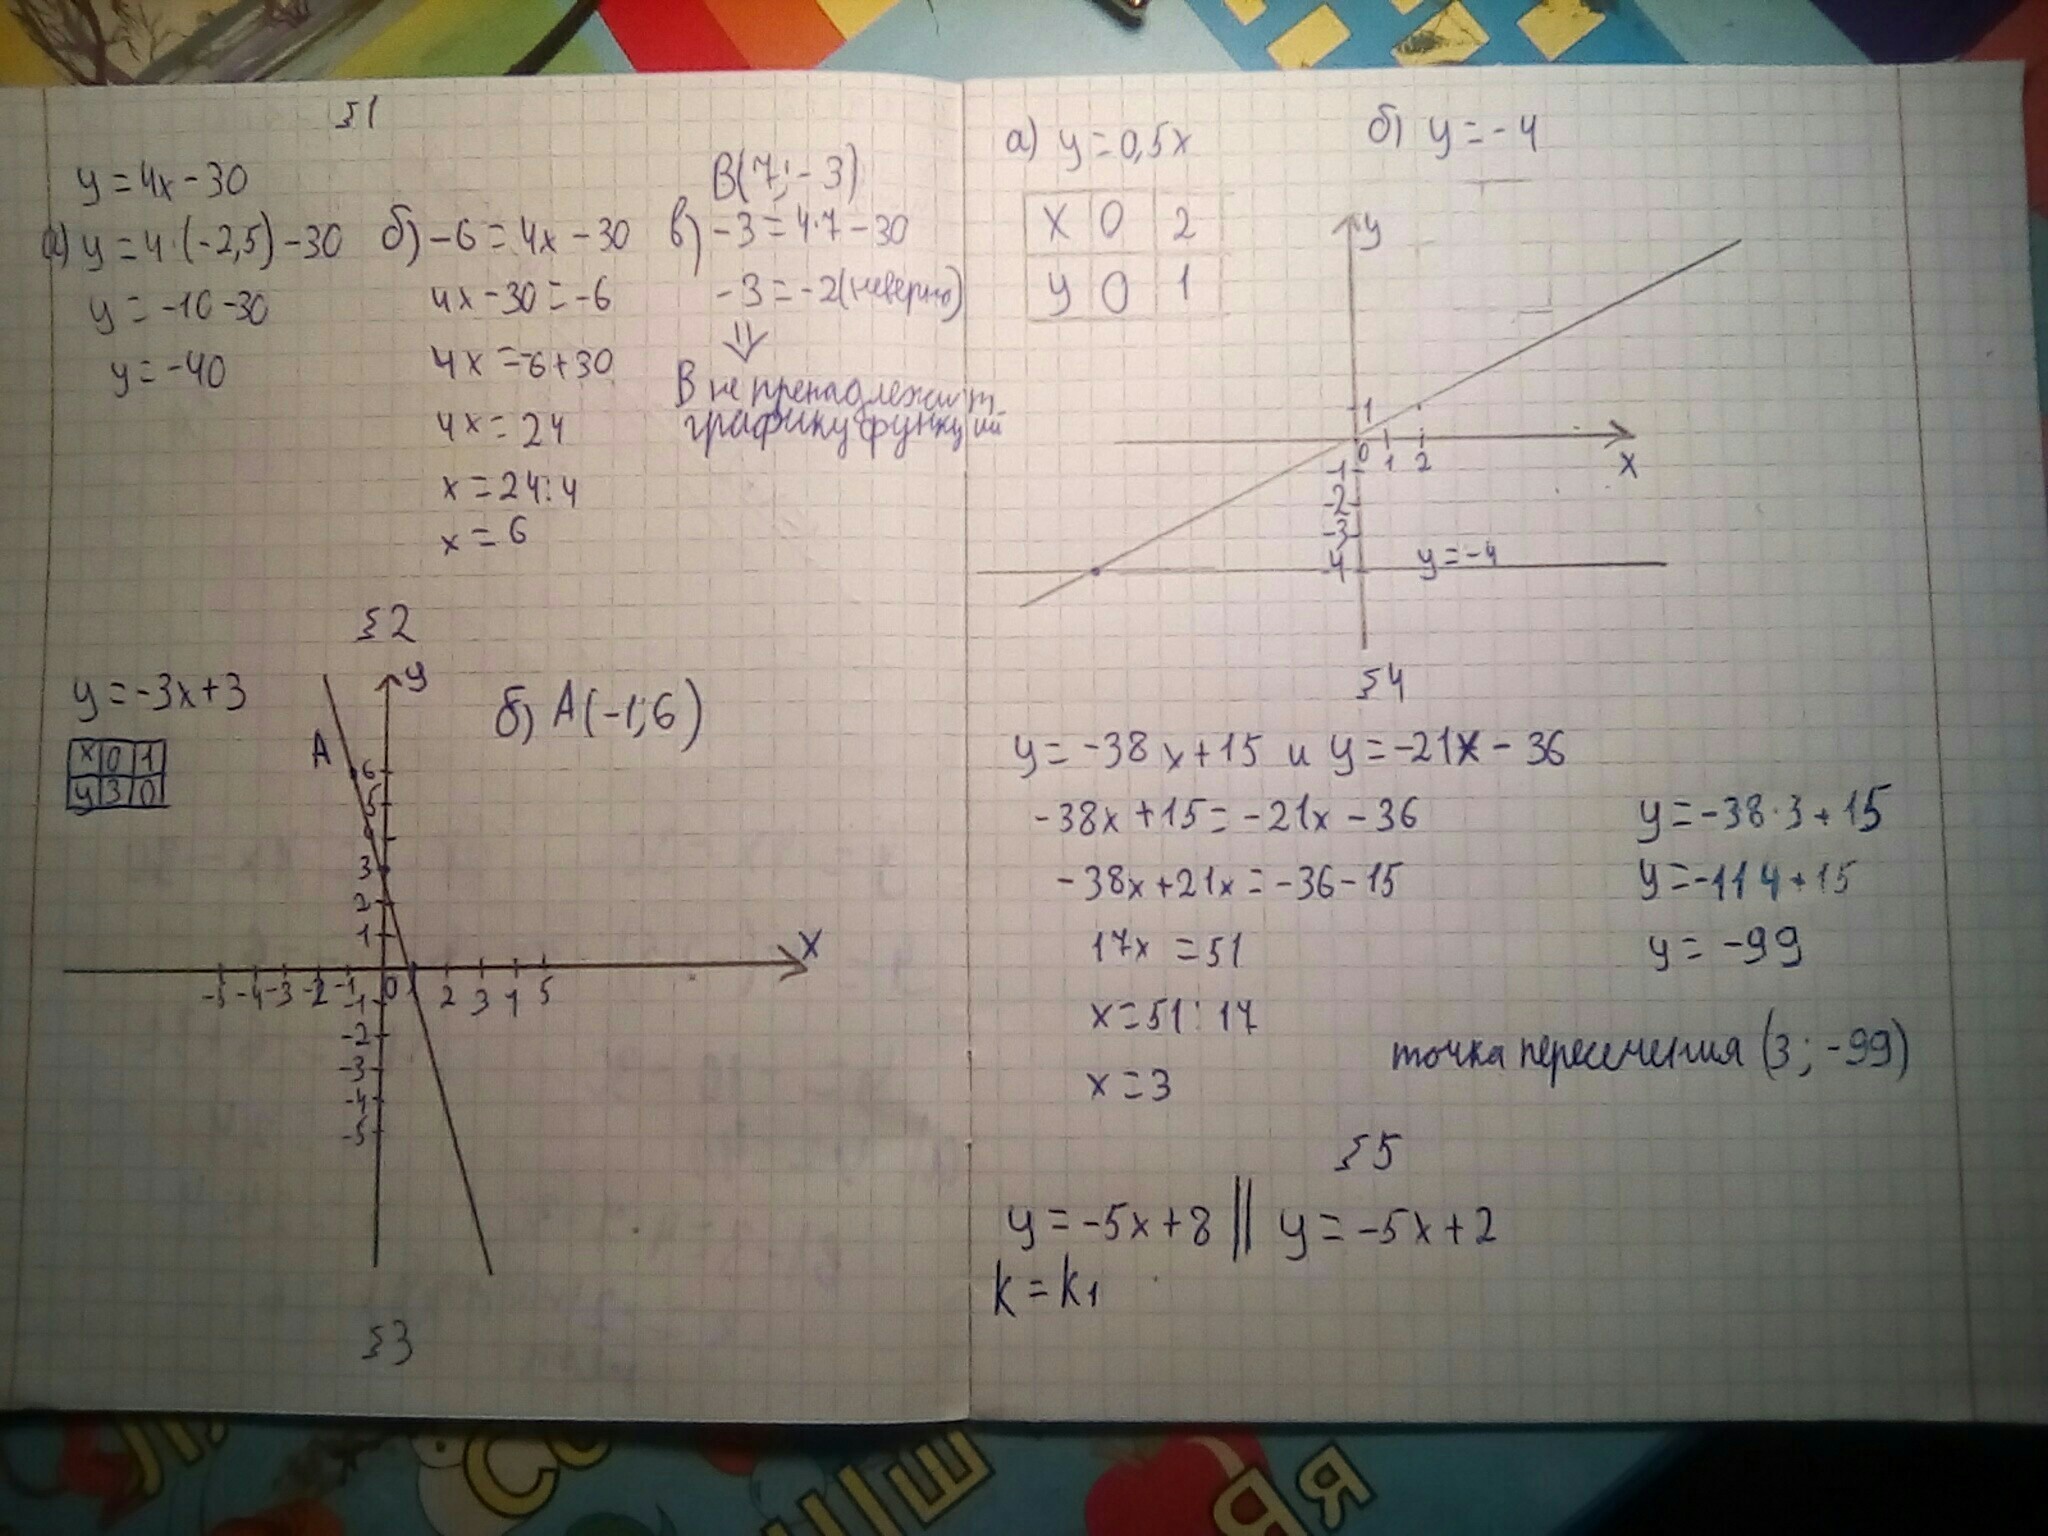 §1
y = 4x - 30
а) y = 4·(-2,5) - 30
y = -10 - 30
y = -40
б) -6 = 4x - 30
4x - 30 = -6
4x = -6 + 30
4x = 24
x = 24:4
x = 6
B(7; -3)
в) -3 = 4·7 - 30
-3 = -2 (неверно)
⇓
В не пренадлежит
графику функций
§2
y = -3x + 3
x 0 1
y 3 0
б) A(-1; 6)
y
A
6
5
4
3
2
1
x
-5 -4 -3 -2 -1 0 1 2 3 4 5
-1
-2
-3
-4
-5
§3
а) y = 0,5x
б) y = -4
x 0 2
y 0 1
y
1
0 1 2
x
-1
-2
-3
-4
y = -4
§4
y = -38x + 15 и y = -21x - 36
-38x + 15 = -21x - 36
-38x + 21x = -36 - 15
17x = 51
x = 51:17
x = 3
y = -38·3 + 15
y = -114 + 15
y = -99
точка пересечения (3; -99)
§5
y = -5x + 8 || y = -5x + 2
k = k1
Я